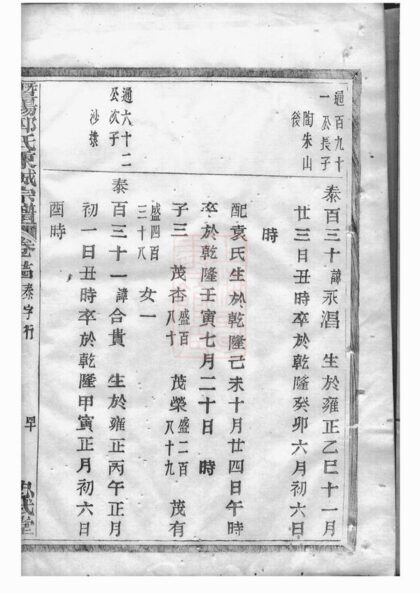 通百九十
一公長子
陶朱山
後
泰百三十諱永潪 生於雍正乙巳十一月
廿三日丑時卒於乾隆癸卯六月初六日
時
配袁氏生於乾隆己未十月廿四日午時
卒於乾隆壬寅七月二十日 時
子三 茂杏盛百八十 茂榮盛二百八十九 茂有
盛四百三十八 女一
通六十二
公次子
沙埭
泰百三十一諱合貴 生於雍正丙午正月
初一日丑時卒於乾隆甲寅正月初六日
酉時
暨陽邱氏東城宗譜 卷 泰字行